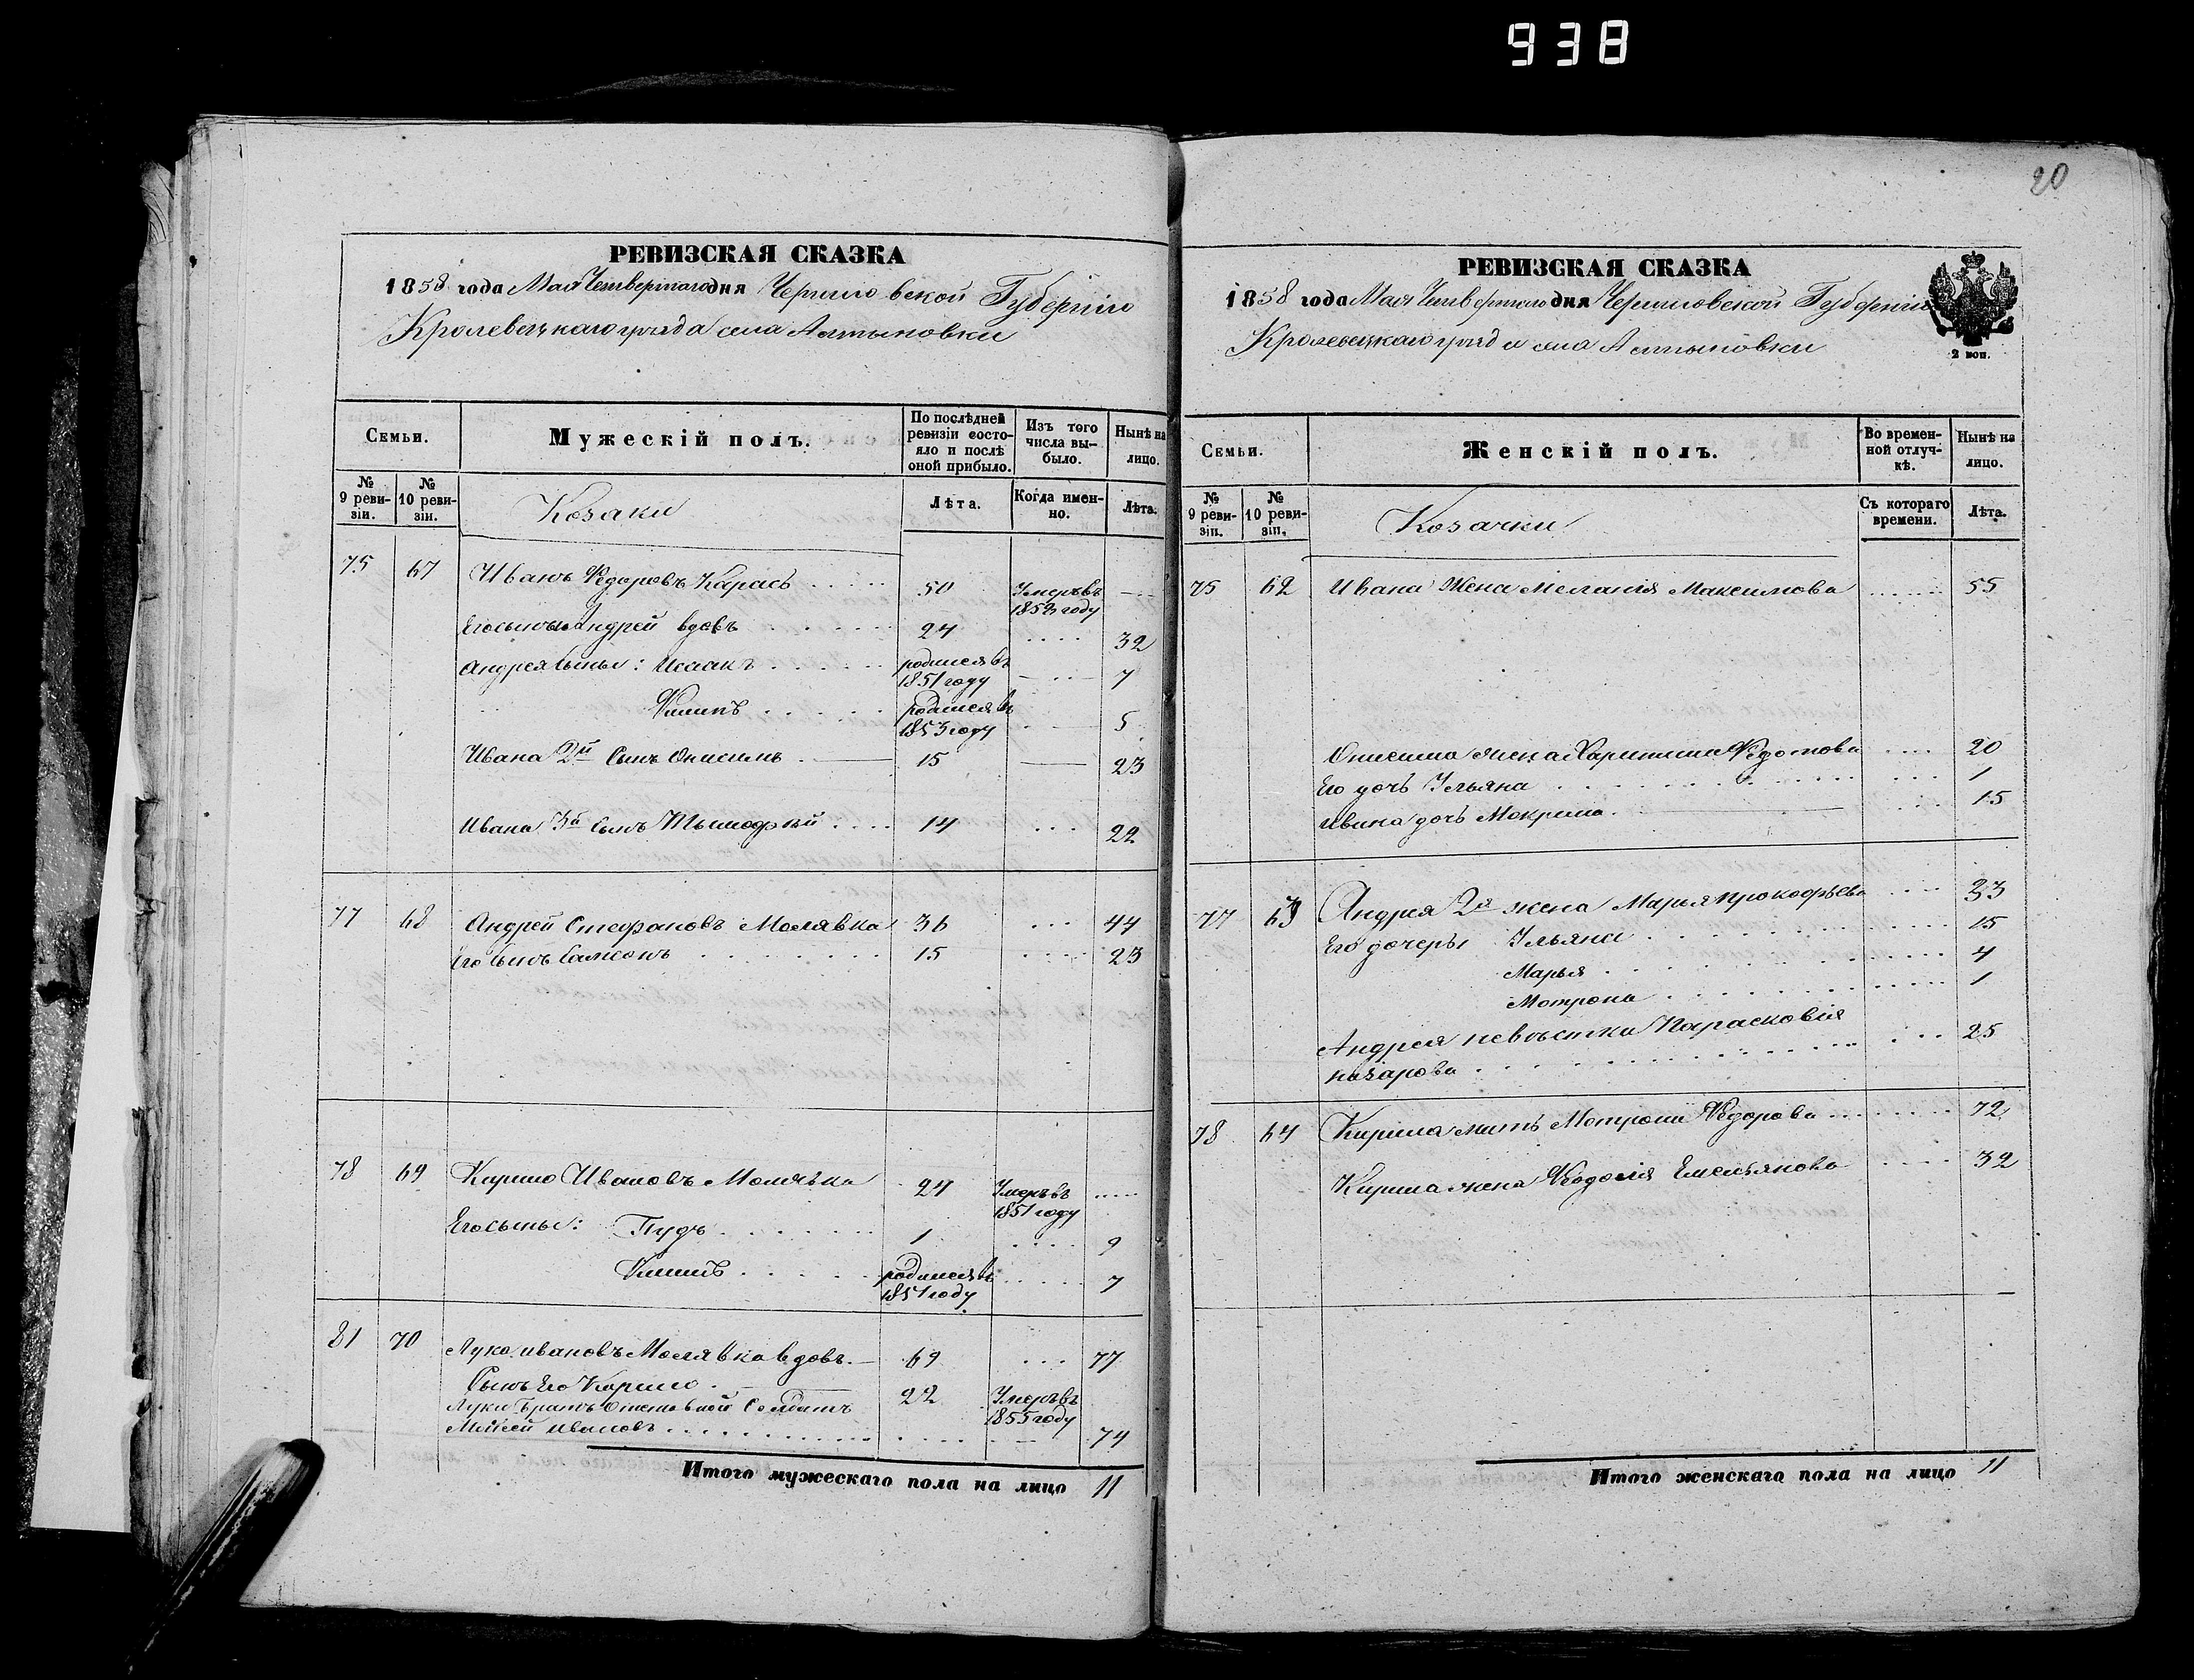 938
РЕВИЗСКАЯ СКАЗКА
1858 года Мая Четвертого дня Черниговской Губернии
Кролевецкаго уѣзда села Алтыновки
Семьи.
Мужескій полъ.
По послѣдней ревизіи состояло и послѣ оной прибыло.
Изъ того числа выбыло.
Нынѣ на лицо.
№ 9 ревизіи.
№ 10 ревизіи.
Козаки
Лѣта.
Когда именно.
Лѣта.
75 67 Иванъ Федоровъ Карась 50 Умеръ въ 1852 году
Его сынъ Андрей вдовъ 24 32
Андрея сыны: Исаакъ родился въ 1851 году 7
Филипъ родился въ 1853 году 5
Ивана 2й Сынъ Онисимъ 15 23
Ивана 3й сынъ Тимофѣй 14 22
77 68 Андрей Стефановъ Молявка 36 44
Его сынъ Самсонъ 15 23
78 69 Кирило Ивановъ Молявка 24 Умеръ въ 1851 году
Его сыны: Пудъ 1 9
Филипъ родился въ 1851 году 7
81 70 Лука Ивановъ Молявка вдовъ 69 77
Сынъ Его Кирило 22 Умеръ въ 1855 году
Луки Братъ Отставной Солдатъ
Мойсей Ивановъ 74
Итого мужескаго пола на лицо 11
20
РЕВИЗСКАЯ СКАЗКА
1858 года Мая Четвертого дня Черниговской Губернии
Кролевецкаго уѣзда села Алтыновки
2 коп.
Семьи.
Женскій полъ.
Во временной отлучкѣ.
Нынѣ на лицо.
№ 9 ревизіи.
№ 10 ревизіи.
Козачки
Съ котораго времени.
Лѣта.
75 62 Ивана Жена Меланія Максимова 55
Онисима жена Харитина 20
Его дочь Ульяна 1
Ивана дочь Мокрина 15
77 63 Андрея 2я жена Марія Прокофьева 33
Его дочери Ульяна 15
Марья 4
Мотрона 1
Андрея невѣстка Парасковія
Назарова 25
78 64 Кирила мать Мотрона Федорова 72
Кирила жена Феодосія Емельянова 32
Итого женскаго пола на лицо 11